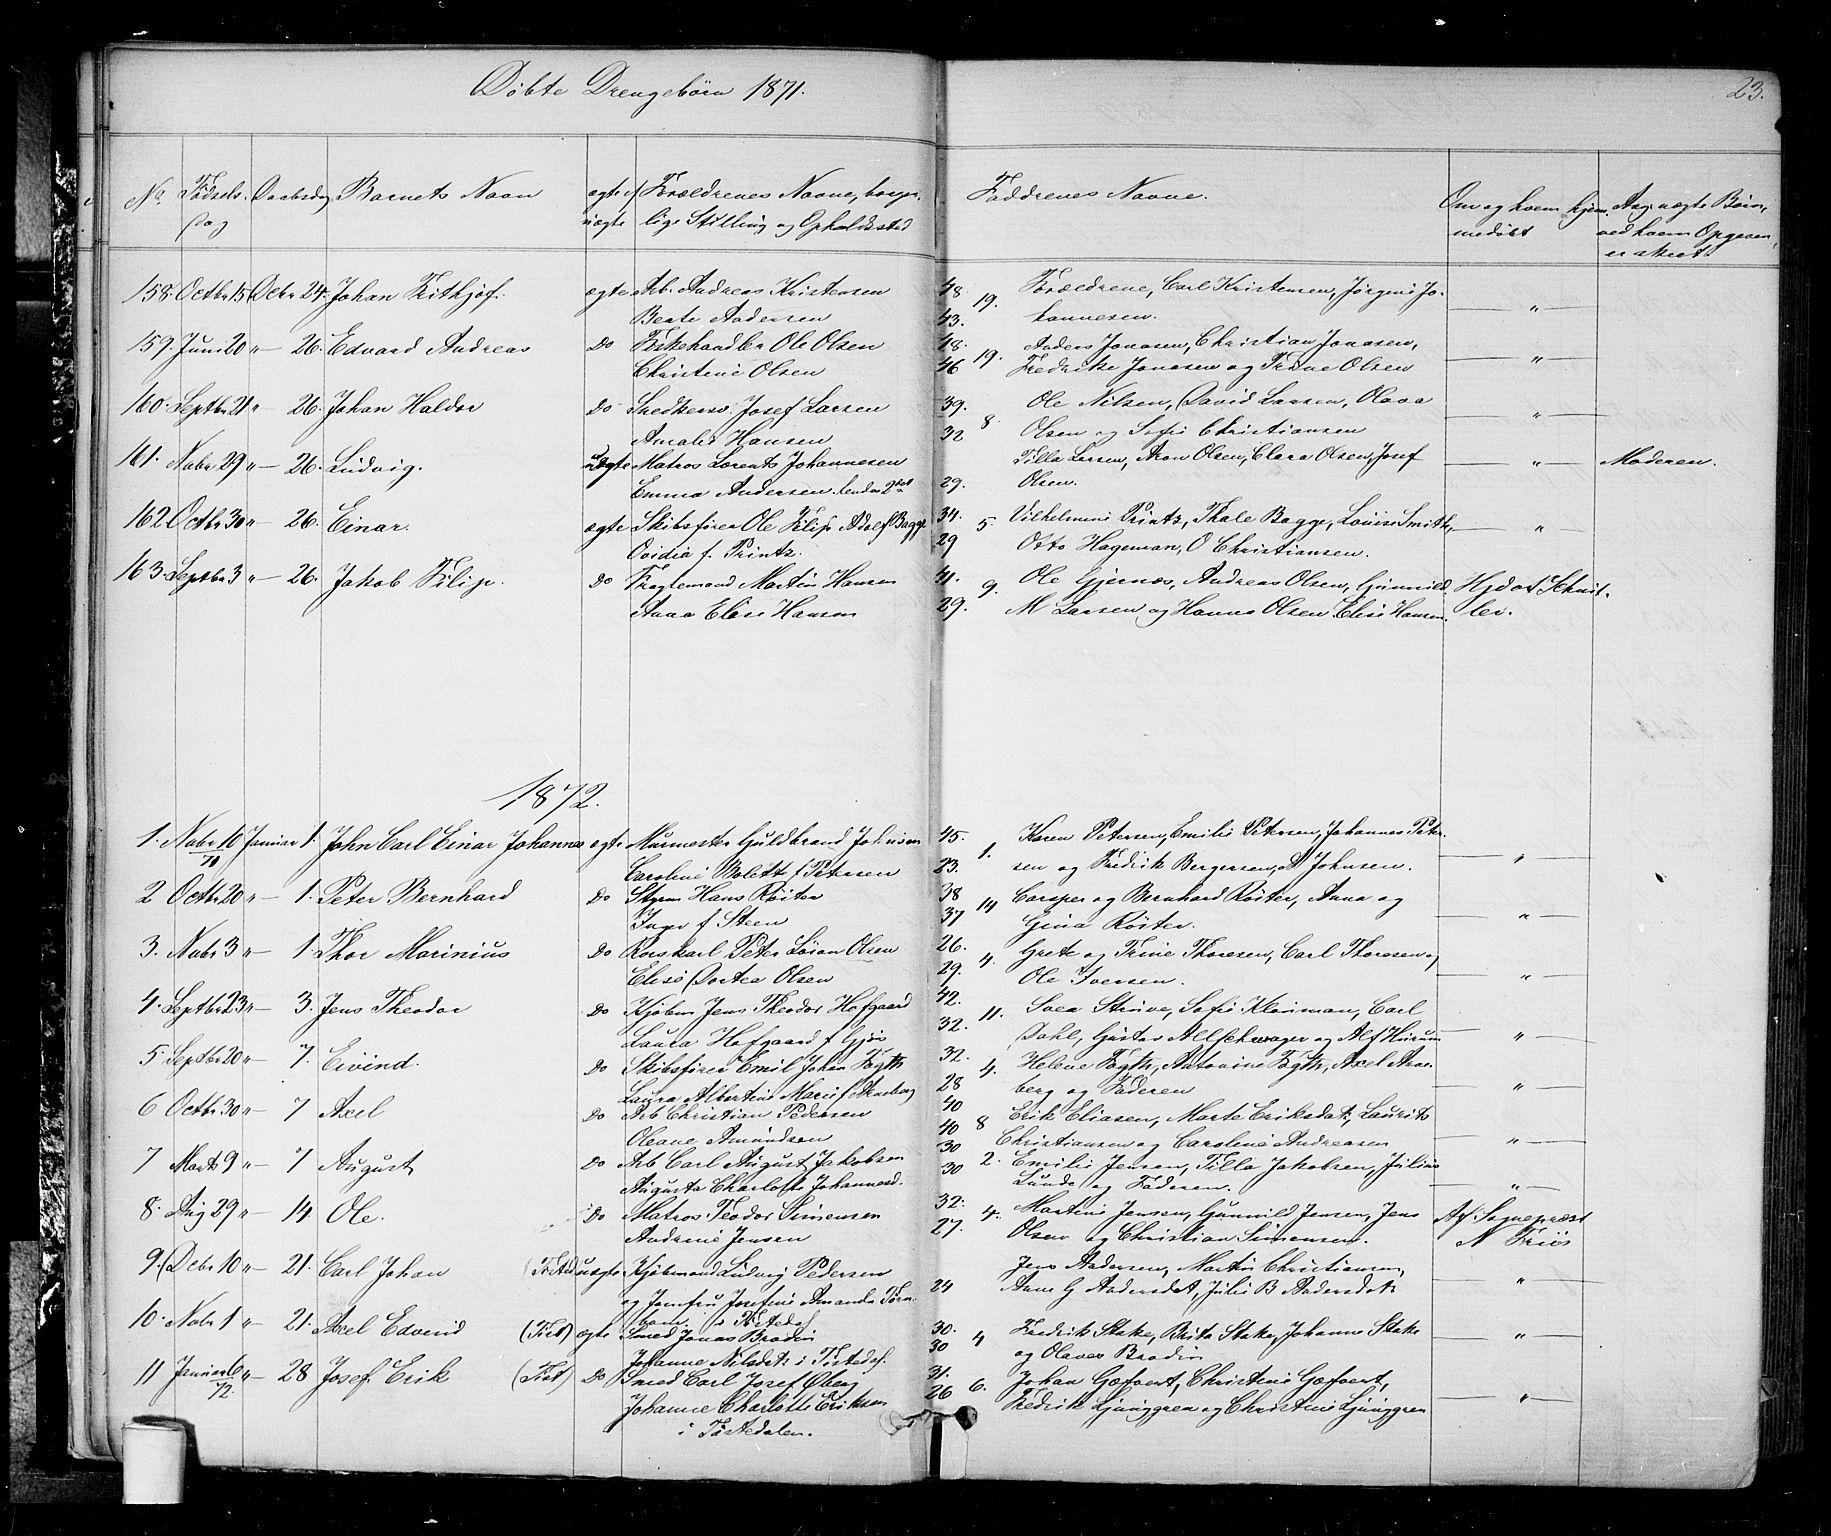 Døbte Drengebörn 1871.
23.
No. Fødsels Daabsdag Barnets Navn ægte el. Forældrenes Navne, borger- Faddrenes Navne. Om og hvem hjem- Ang. uægte Börn,
dag uægte lige Stilling og Opholdssted medöbt ved hvem Opgaven
er skeet
158. Octbr 15 Decbr 24. Johan Frithjof. ægte Arb. Andreas Kristensen 48. 19. Forældrene, Carl Kristensen, Jörgine Jo- "
Berte Andersen 43. hannesen.
159. Juni 20 " 26. Edvard Andreas Do Ole Olsen 48. 19. Anders Jonasen, Christian Jonasen, "
Christine Olsen 46 Fredrikke Jonasen og Trine Olsen
160. Septbr 21 " 26. Johan Haldor Do Snedkersv. Josef Larsen 39. 8 Ole Nilsen, David Larsen, Olava "
Amalie Hansen 32 Olsen og Sofie Christiansen
161. Novbr 29 " 26. Ludvig. uægte Matros Lorents Johannesen Tilla Larsen, Aron Olsen, Clara Olsen, Josef " Moderen.
Emma Andersen hendes 2det 29. Olsen.
162 Octbr 30 " 26. Einar. ægte Skibsförer Ole Filip Adolf Bagge 34. 5. Vilhelmine Printz, Thale Bagge, Louise Smith, "
Ovidia f. Printz. 29 Otto Hageman, O Christiansen.
163. Septbr 3 " 26. Jakob Filip. Do Fragtemand Martin Hansen 41. 9. Ole Gjernæs, Andreas Olsen, Gunnild Hjd af Schnit-
Anna Elise Hansen 29. M Larsen og Hanna Olsen Elise Hansen. ler.
1872.
1. Novbr 10/70 Januar 1. John Carl Einar Johannes ægte Murmester Guldbrand Johnsen 45. 1. Karen Petersen, Emilie Petersen, Johannes Peter- "
Caroline Bolette f Petersen 23. sen og Fredrik Bergersen, Johnsen.
2 Octbr 20 " 1. Peter Bernhard Do Styrm Hans Röster 38 14 Casper og Bernhard Röster, Anna og "
Inger f Steen 37 Gina Röster.
3. Novbr 3 " 1. Thor Marinius Do Rorskarl Peter Söran Olsen 26. 4. Grete og Trine Thoresen, Carl Thoresen og
Elise Dortea Olsen 29. Ole Iversen. "
4. Septbr 23 " 3. Jens Theodor Do Kjöbm Jens Theodor Hofgaard 42. 11. Svea Struve, Sofie Klouman, Carl
Laura Hofgaard f Gjös 32. Dahl, Gustav Allschwager og Alf Hurum "
5. Septbr 20 " 7. Eivind. Do Skibsförer Emil Johan Fogth 32. 4. Helene Fogth, Antonine Fogth, Axel Arne-
Laura Albertine Marie f Arneberg 28 berg og Faderen "
6 Octbr 30 " 7 Axel Do Arb Christian Pedersen 40 8 Erik Eliasen, Marte Eriksdat, Laurits
Oleane Amundsen 40 Christiansen og Caroline Andreasen "
7 Marts 9 " 7 August Do Arb Carl August Jakobsen 30 2. Emilie Jensen, Tilla Jakobsen, Julius
Augusta Charlotte Johannesd. 30 Lunde og Faderen. "
8. Aug 29 " 14. Ole. Do Matros Teodor Simensen 32. 4. Martine Jensen, Gunnild Jensen, Jens Af Sognepræst
Andrine Jensen 27. Olsen og Christian Simensen. N Friis
9. Decbr 10 " 21. Carl Johan uægte Kjöbmand Ludvig Pedersen Jens Andersen, Martin Christiansen, "
og Jomfru Josefine Amanda Törn- 24 Anne G Andersdat, Julie B Andersdat
bom i Tistedal
10. Novbr 1 " 21. Axel Edvind (Tist) ægte Smed Jonas Brodin 30. 4 Fredrik Stake, Brita Stake, Johanne Stake "
Johanne Nilsdat i Tistedal. 30 og Olaves Brodin
11 Januar 6/72 " 28 Josef Erik (Tist) Do Smed Carl Josef Öberg 31. 6. Johan Gæfvert, Christine Gæfvert,
Johanne Charlotte Eriksen 26 Fredrik Ljunggren og Christine Ljunggren "
i Tistedalen.